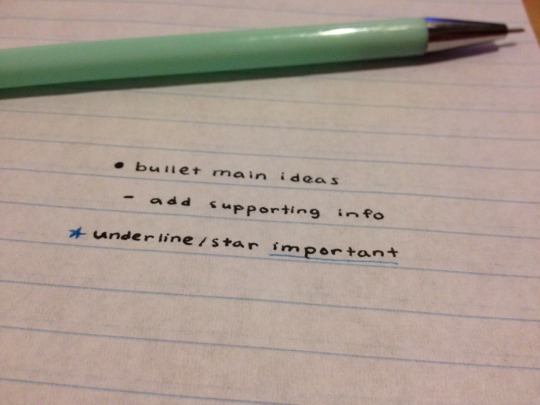 • bullet main ideas
- add supporting info
* underline/star important